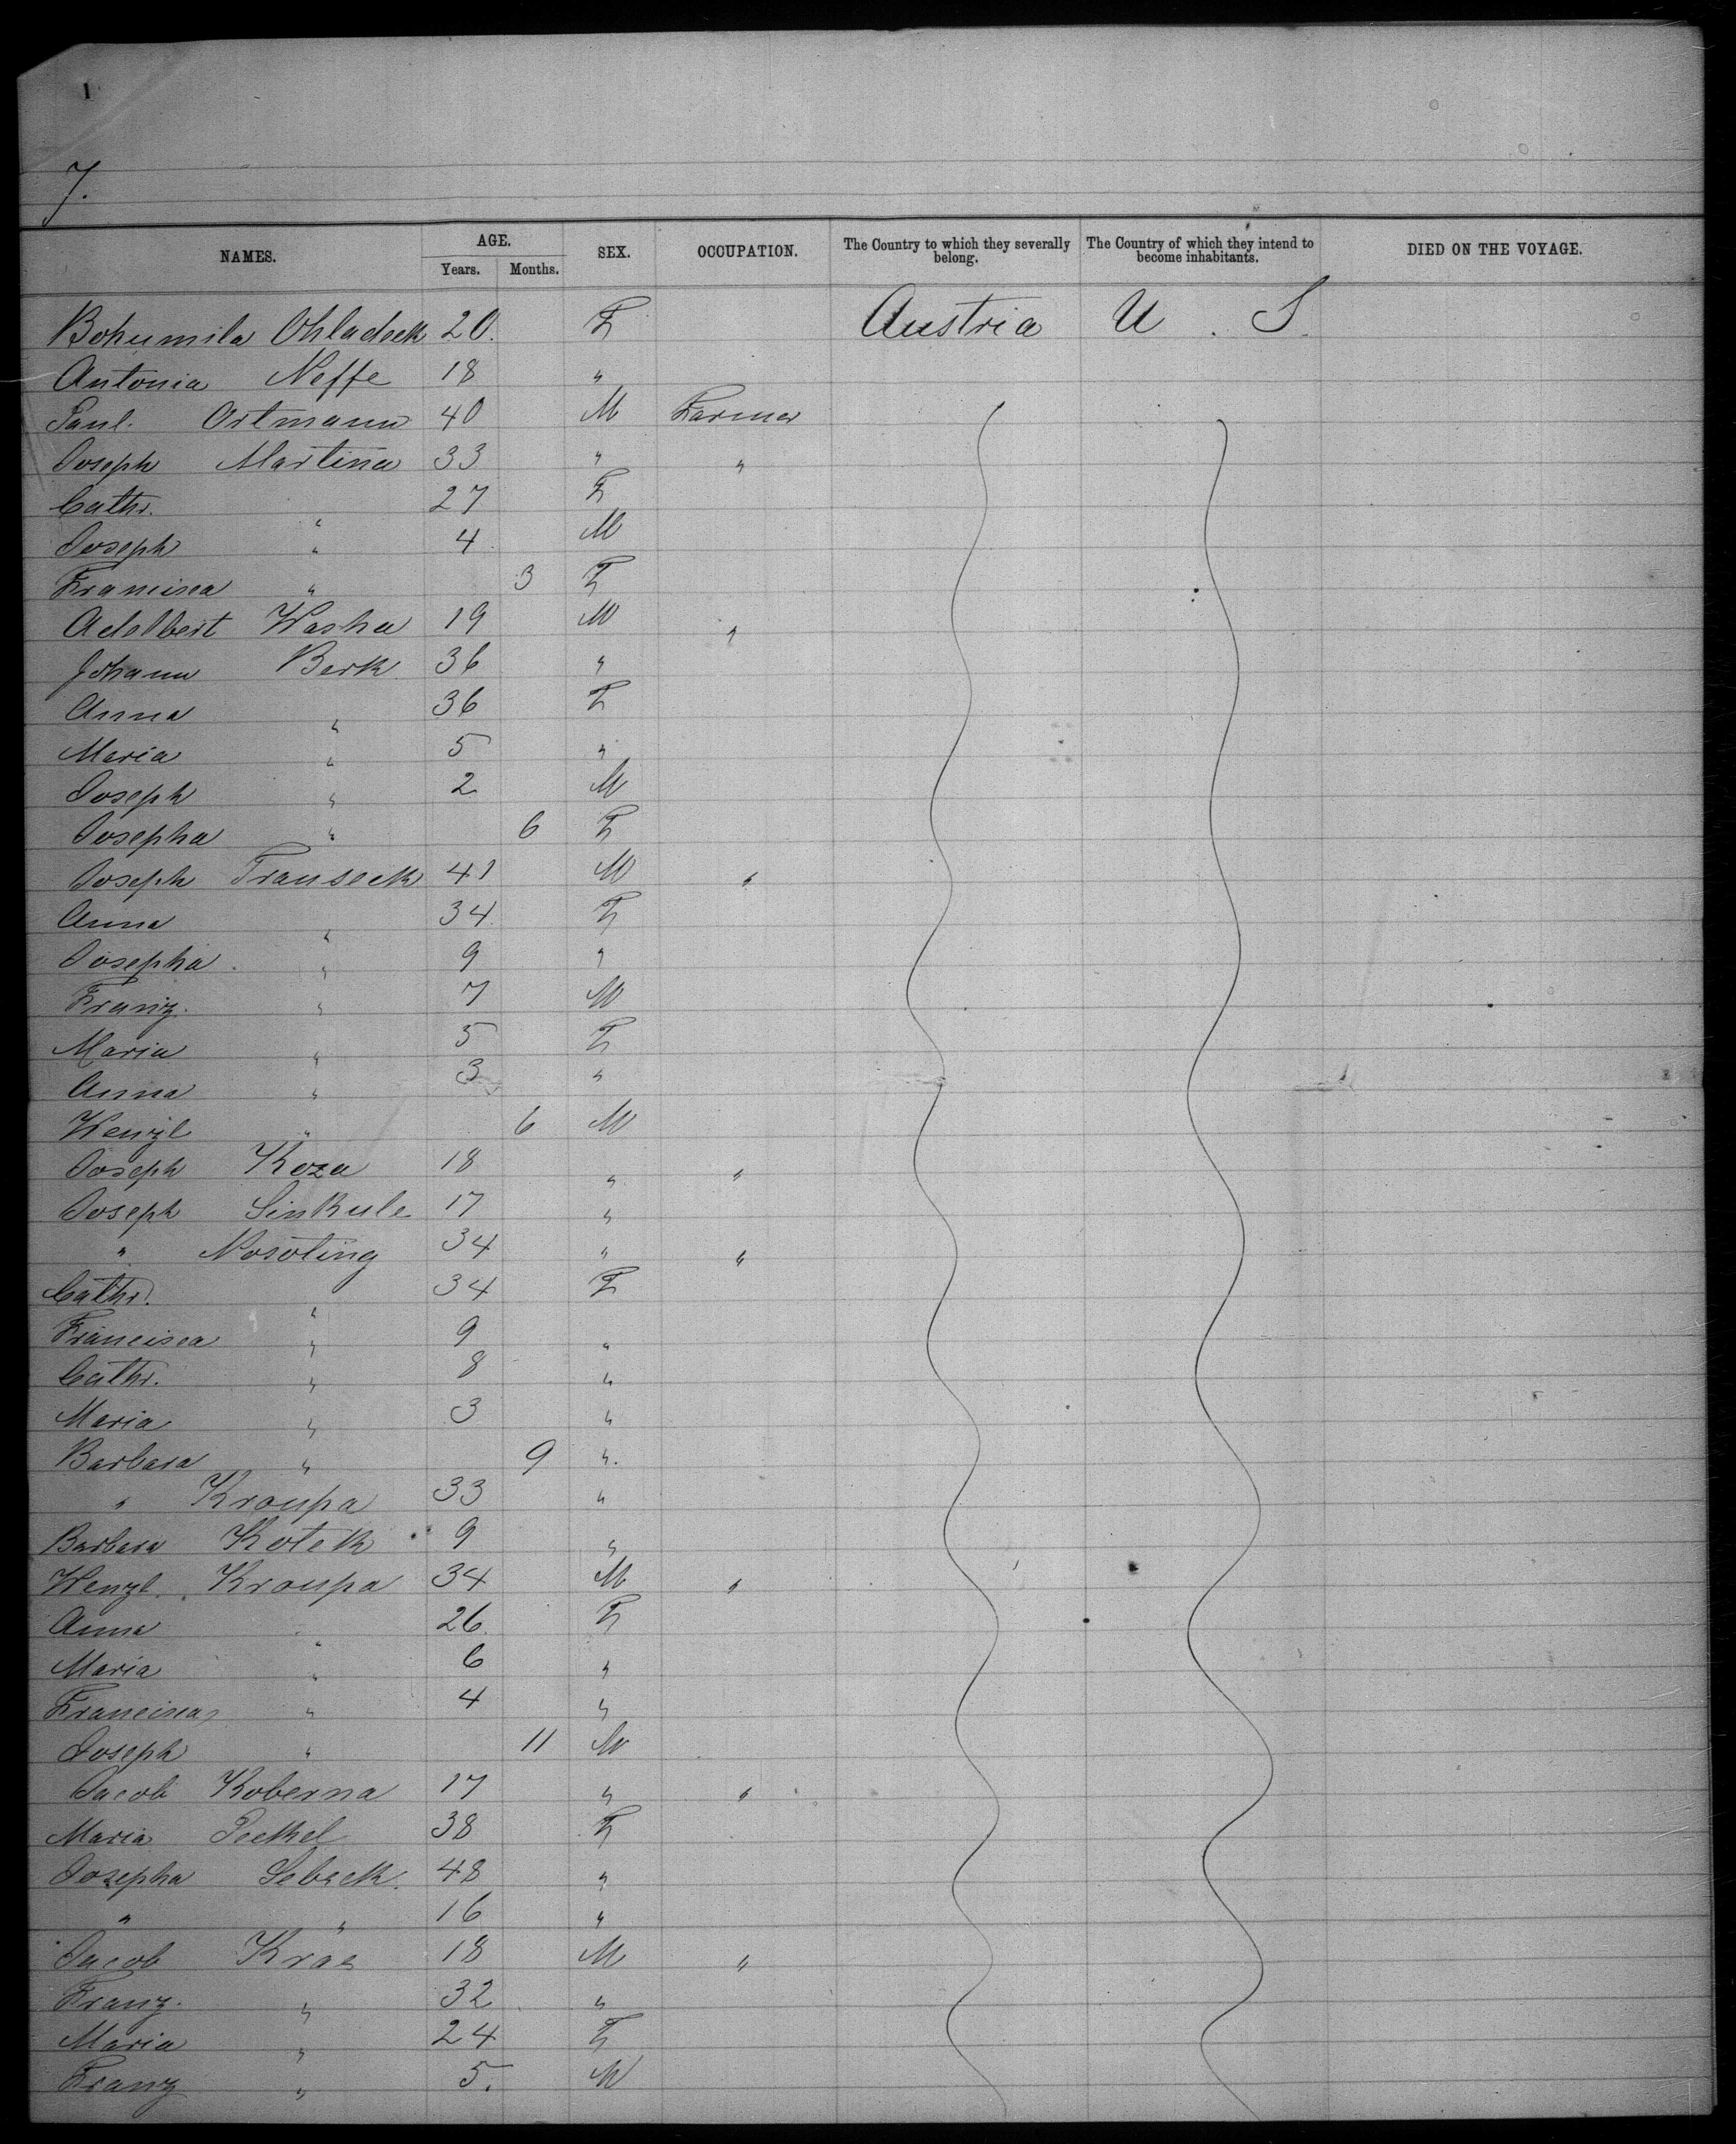 7.
NAMES. AGE. SEX. OCCUPATION. The Country to which they severally belong. The Country of which they intend to become inhabitants. DIED ON THE VOYAGE.
Years. Months.
Bohumila Ohladeck 20. F Austria U. S.
Antonia Neffe 18 "
Paul. Ortmann 40 M Farmer
Joseph Martina 33 " "
Cathr. " 27 F
Joseph " 4 M
Francisca " 3 F
Adelbert Washa 19 M "
Johann Berk 36 "
Anna " 36 F
Maria " 5 "
Joseph " 2 M
Josepha " 6 F
Joseph Franseck 41 M "
Anna " 34 F
Josepha " 9 "
Franz. " 7 M
Maria " 5 F
Anna " 3 "
Wenzl " 6 M
Joseph Koza 18 " "
Joseph Sinkule 17 "
" Nosoting 34 " "
Cathr. " 34 F
Francisca " 9 "
Cathr. " 8 "
Maria " 3 "
Barbara " 9 "
" Kroupa 33 "
Barbara Kotek 9 "
Wenzl. Kroupa 34 M "
Anna " 26 F
Maria " 6 "
Francisca " 4 "
Joseph " 11 M
Jacob Koberna 17 " "
Maria Pechel 38 F
Josepha Sebeck 48 "
" " 16 "
Jacob Kras 18 M "
Franz. " 32 "
Maria " 24 F
Franz " 5. M